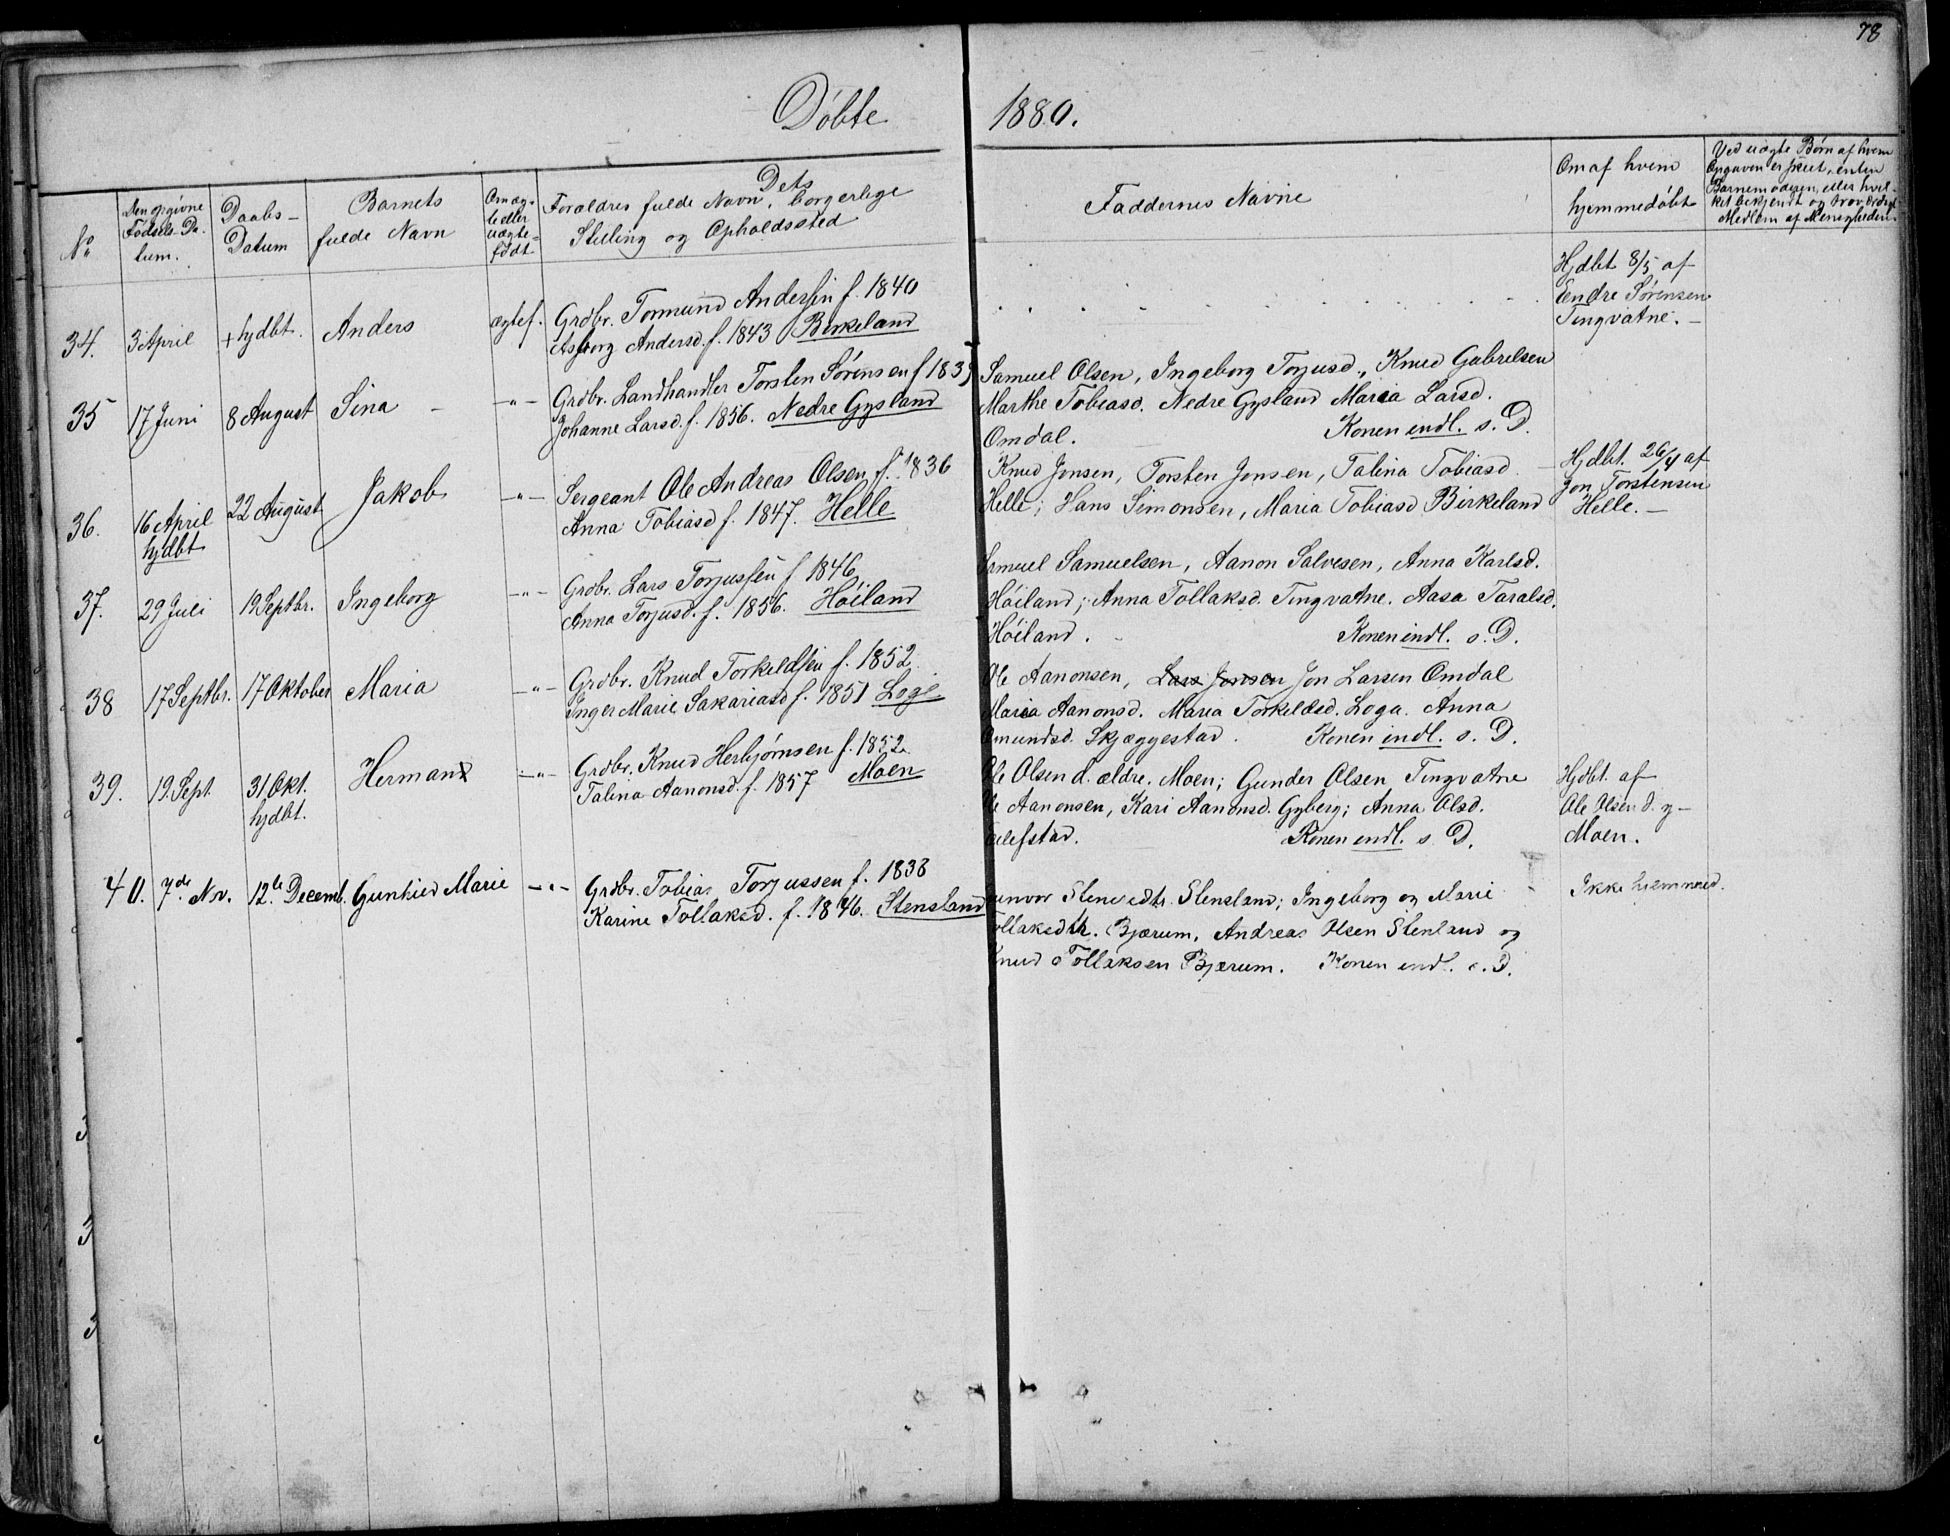 78
Døbte 1880.
No
Den opgivne
Fødsels-Da-
tum.
Daabs-
Datum
Barnets
fulde Navn
Om æg-
te eller
uægte-
født.
Dets
Forældres fulde Navn, borgerlige
Stilling og Opholdssted
Faddernes Navne
Om af hvem
hjemmedøbt
Ved uægte Børn af hvem
Opgaven er skeet, enten
Barnemoderen, eller hvil-
ket bekjendt og troværdigt
Medlem af Menigheden.
34. 3 April + hjdbt. Anders ægtef.
Grdbr. Tormund Andersen f. 1840
Asborg Andersd. f. 1843 Birkeland
Hjdbt 8/5 af
Eendre Sørensen
Tingvatne. –
35 17 Juni 8 August Sina – –"–
Grdbr. Landhandler Torsten Sørensen f 1839
Johanne Larsd. f. 1856. Nedre Gysland
Samuel Olsen, Ingeborg Torjusd., Knud Gabrielsen
Marthe Tobiasd. Nedre Gysland Maria Larsd.
Omdal. Konen indl. s. D.
36. 16 April
hjdbt
22 August Jakob –"–
Sergeant Ole Andreas Olsen f. 1836
Anna Tobiasd f. 1847. Helle
Knud Jonsen, Torsten Jonsen, Talina Tobiasd
Helle; Hans Simonsen, Maria Tobiasd Birkeland
Hjdbt. 26/4 af
Jon Torstensen
Helle. –
37. 29 Juli 19 Septbr. Ingeborg –"–
Grdbr. Lars Torjussen f 1846
Anna Torjusd. f. 1856. Høiland
Samuel Samuelsen, Aanon Salvesen, Anna Karlsd.
Høiland; Anna Tollaksd. Tingvatne. Aasa Taralsd.
Høiland. Konen indl. s. D.
38 17 Septbr. 17 Oktober Maria –"–
Grdbr. Knud Torkeldsen f. 1852
Inger Marie Sakariasd f. 1851 Loge
Ole Aanonsen, Lars Jonsen Jon Larsen Omdal
Maria Aanonsd. Maria Torkeldsd. Loga. Anna
Omundsd. Skjæggestad. Konen indl. s. D.
39. 19. Sept. 31 Okt.
hjdbt.
Herman –"–
Grdbr. Knud Herbjørnsen f. 1852
Talina Aanonsd. f. 1857 Moen
Ole Olsen d. ældre. Moen; Gunder Olsen Tingvatne
Ole Aanonsen, Kari Aanonsd. Gyberg; Anna Olsd.
Konen indl. s D.
Hjdbt. af
Ole Olsen d. y –
Moen.
40. 7de Nov. 12te Decemb. Gunhild Marie –"–
Grdbr. Tobias Torjussen f. 1838
Karine Tollaksd. f. 1846. Stensland
Gunvor Stenesdtr. Stensland; Ingeborg og Marie
Tollaksdtr. Bjærum, Andreas Olsen Stenland og
Knud Tollaksen Bjærum. Konen indl. s. D.
Ikke hjemmed.